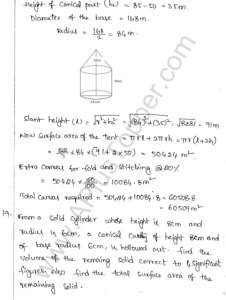 Height of conical part (h₁) = 85-50 = 35m.
Diameter of the base = 168m.
radius = 168/2 = 84m.
Slant height (l) = √r²+h₁² = √(84)²+(35)² = √8281 = 91m
Now surface area of the tent = πrl+2πrh = πr(l+2h)
= 22/7 × 84 × (91+2×50) = 50424 m²
Extra canvas for fold and stitching @20%
= 50424 × 20/100 = 10084.8m²
Total canvas required = 50424+10084.8 = 60508.8
= 60509m²
19.
From a solid cylinder whose height is 8cm and
radius is 6cm, a conical cavity of height 8cm and
of base radius 6cm, is hollowed out. find the
volume of the remaining solid correct to 4 significant
figures. also find the total surface area of the
remaining solid.